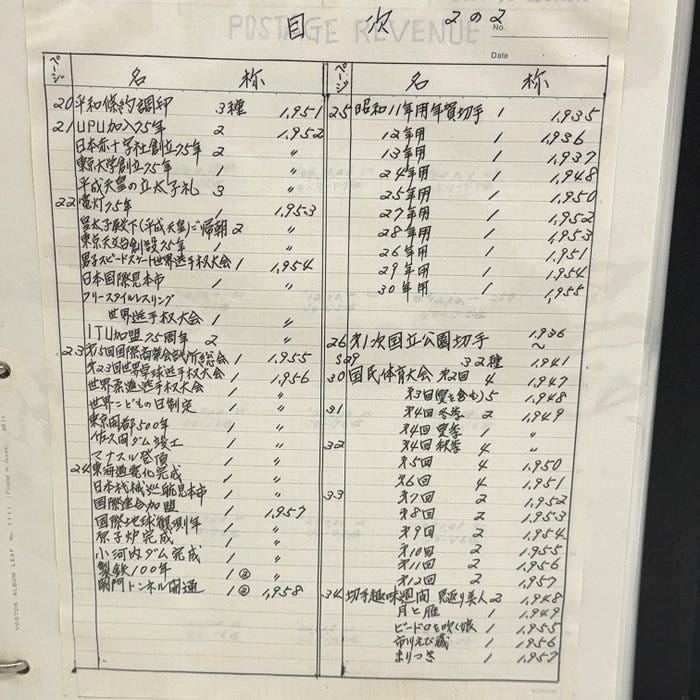 POSTAGE REVENUE
目 次 2の2
No.
Date
ページ 名 称
20 平和條約調印 3種 1,951
21 UPU加入75年 2 1,952
日本赤十字社創立75年 2 〃
東京大学創立75年 1 〃
平成天皇の立太子礼 3 〃
22 電灯75年 1 1,953
皇太子殿下(平成天皇)ご帰朝 2 〃
東京天文台創設75年 1 〃
男子スピードスケート世界選手权大会 1 1,954
日本国際見本市 1 〃
フリースタイルレスリング
世界選手权大会 1 〃
ITU加盟75周年 2 〃
23 第15回国際商業会議所総会 1 1,955
第23回世界卓球選手权大会 1 1,956
世界柔道選手权大会 1 〃
世界こどもの日制定 1 〃
東京開都500年 1 〃
佐久間ダム竣工 1 〃
マナスル登頂 1 〃
24 東海道電化完成 1 〃
日本机械巡航見本市 1 〃
国際連合加盟 1 1,957
国際地球観測年 1 〃
原子炉完成 1 〃
小河内ダム完成 1 〃
製鉄100年 1 〃
関門トンネル開通 1 1,958
ページ 名 称
25 昭和11年用年賀切手 1 1,935
12年用 1 1,936
13年用 1 1,937
24年用 1 1,948
25年用 1 1,950
27年用 1 1,952
28年用 1 1,953
26年用 1 1,951
29年用 1 1,954
30年用 1 1,955
26 第1次国立公園切手 1,936
〜
S29 32種 1,941
30 国民体育大会 第2回 4 1,947
第3回(夏も含む) 5 1,948
31 第4回冬季 2 1,949
第4回夏季 1 〃
32 第4回秋季 4 〃
第5回 4 1,950
第6回 4 1,951
33 第7回 2 1,952
第8回 2 1,953
第9回 2 1,954
第10回 2 1,955
第11回 2 1,956
第12回 2 1,957
34 切手趣味週間 見返り美人 2 1,948
月と雁 1 1,949
ビードロを吹く娘 1 1,955
市川えび蔵 1 1,956
まりつき 1 1,957
VOSTOK ALBUM LEAF No. 1111 (Printed in Japan)